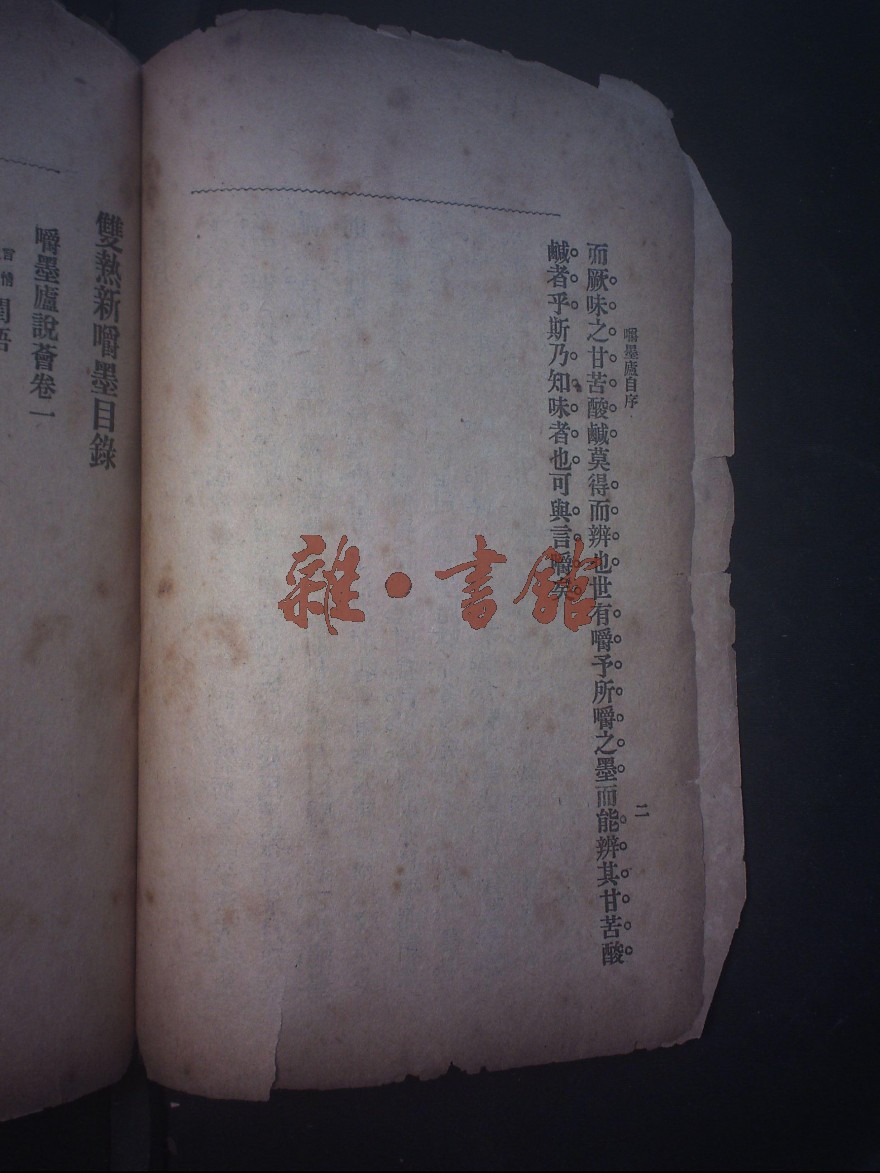 嚼墨廬自序
二
而厥味之甘苦酸鹹莫得而辨也世有嚼予所嚼之墨而能辨其甘苦酸
鹹者乎斯乃知味者也可與言嚼矣
雙熱新嚼墨目錄
嚼墨廬說薈卷一
言情
雜·書館